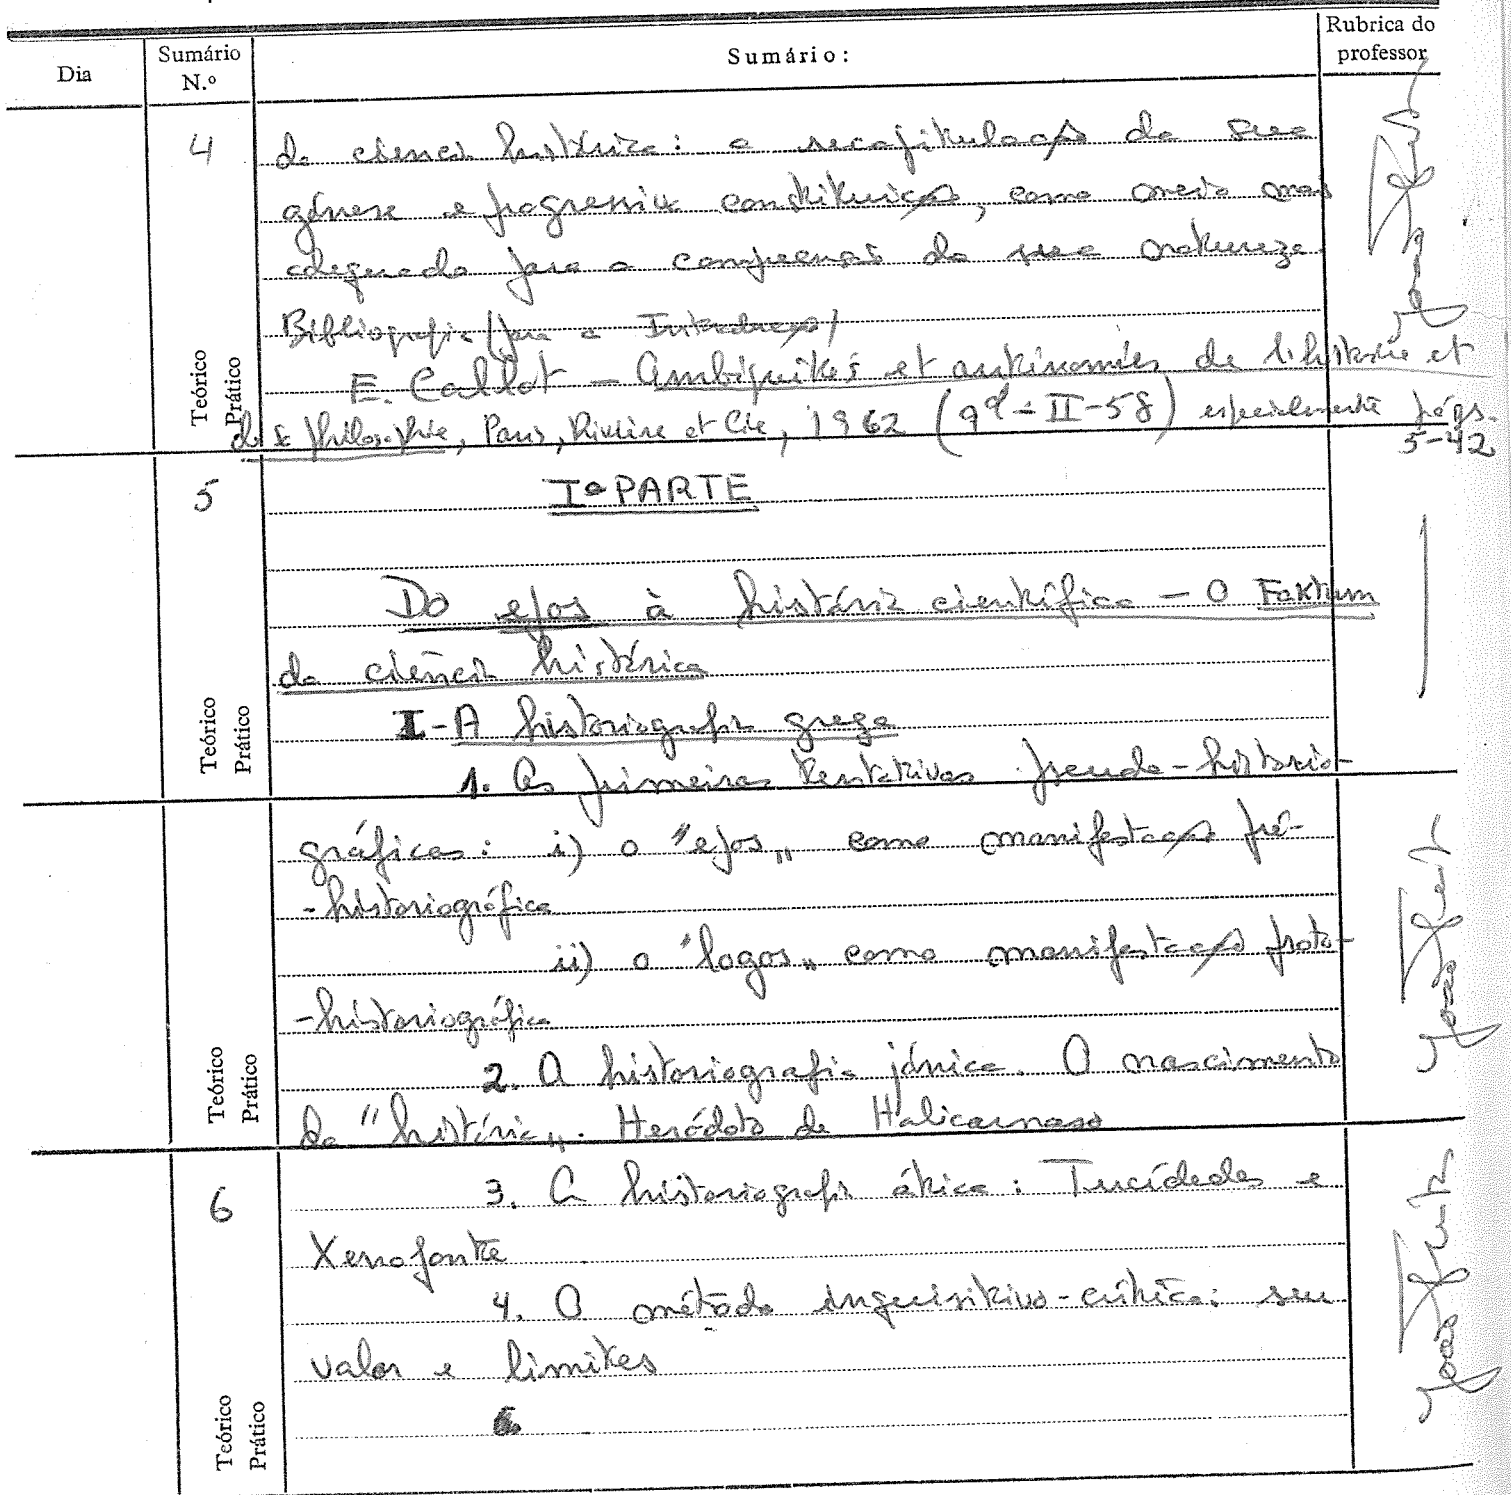 Dia
Sumário N.º
Sumário:
Rubrica do professor
4
da ciência histórica: a recapitulação da sua
génese e progressiva constituição, como meio mais
adequado para a compreensão da sua natureza
Bibliografia (para a Introdução)
E. Callot – Ambiguités et antinomies de l'histoire et
de sa philosophie, Paris, Rivière et Cie, 1962 (9d-II-58) especialmente págs. 5-42
Teórico
Prático
5
Iª PARTE
Do epos à história científica – O Faktum
da ciência histórica
I - A historiografia grega
1. As primeiras tentativas pseudo-historio-
Teórico
Prático
gráficas: i) o "epos" como manifestação pré-
-historiográfica
ii) o "logos" como manifestação proto-
-historiográfica
2. A historiografia jónica. O nascimento
da "história". Heródoto de Halicarnasso
Teórico
Prático
6
3. A historiografia ática: Tucídedes e
Xenofonte
4. O método inquisitivo-crítico: seu
valor e limites
Teórico
Prático